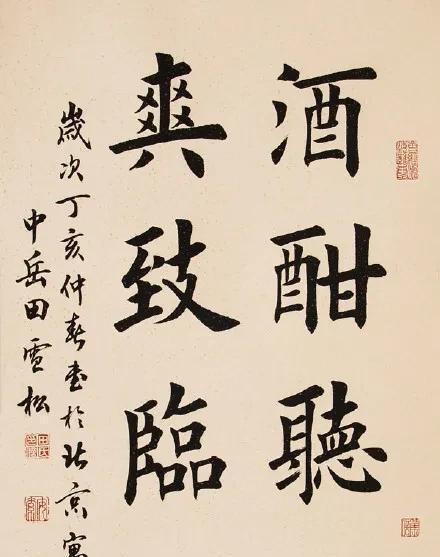 酒酣聽
爽致臨
歲次丁亥仲春書於北京寓
中岳田雪松